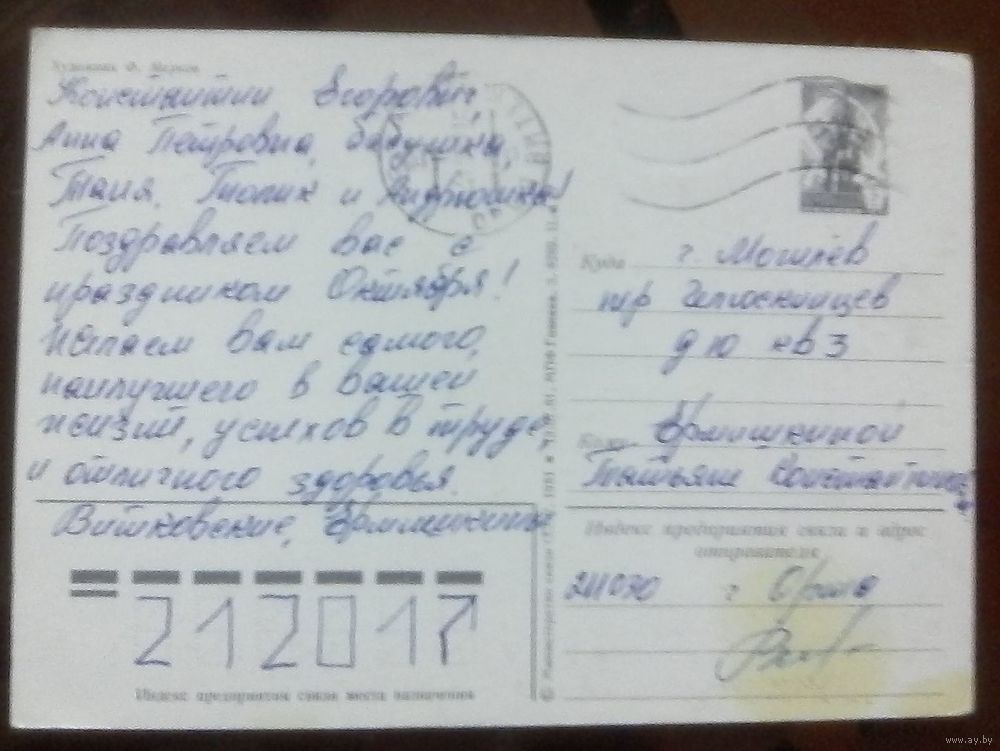 Художник Ф. Марков
Константин Егорович,
Анна Петровна, бабушка,
Таня, Толик и Андрюшка!
Поздравляем вас с
праздником Октября!
Желаем вам самого,
наилучшего в вашей
жизни, успехов в труде,
и отличного здоровья.
Витковские, Ермишкины
212017
Индекс предприятия связи места назначения
Куда г. Могилёв
пр
д 10 кв 3
Кому Ермишкиной
Татьяне Константиновне
Индекс предприятия связи и адрес
отправителя
211030 г Орша
www.ay.by